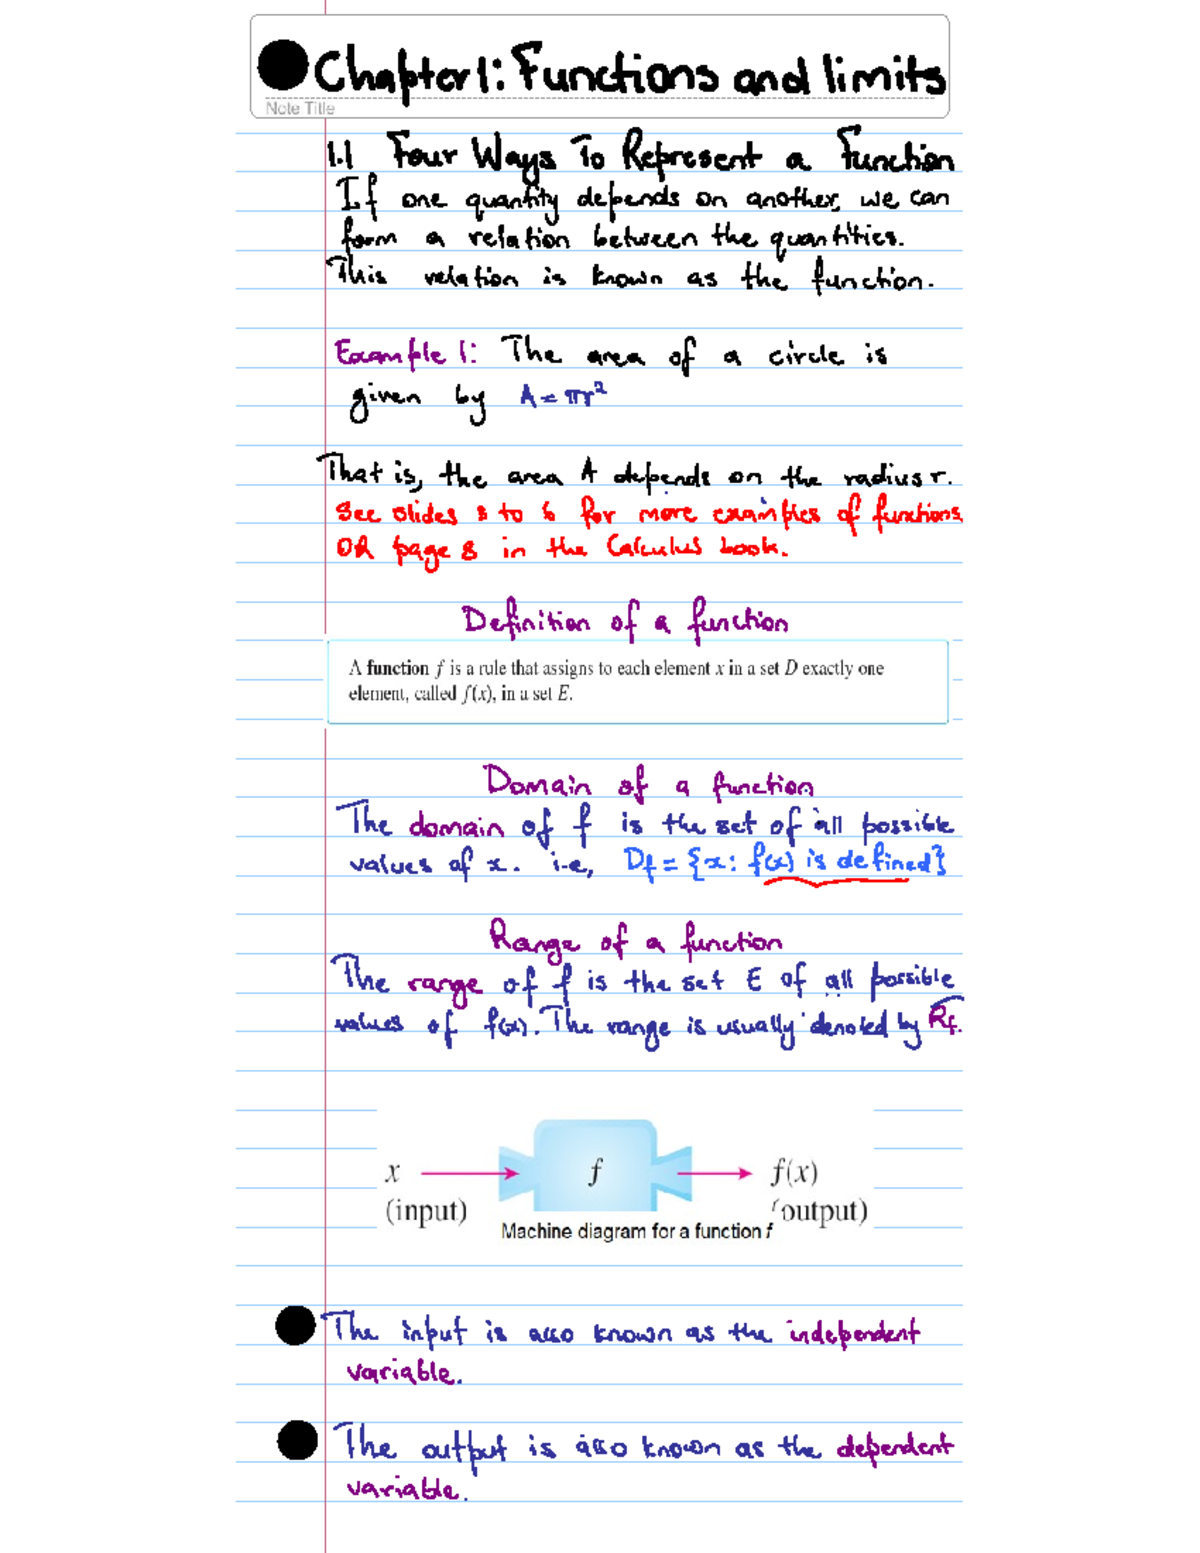 Chapter 1: Functions and limits
Note Title
1.1 Four Ways To Represent a Function
If one quantity depends on another, we can
form a relation between the quantities.
This relation is known as the function.
Example 1: The area of a circle is
given by A = πr²
That is, the area A depends on the radius r.
See slides to 6 for more examples of functions
OR page 8 in the Calculus book.
Definition of a function
A function f is a rule that assigns to each element x in a set D exactly one
element, called f(x), in a set E.
Domain of a function
The domain of f is the set of all possible
values of x. i.e, Df = {x: f(x) is defined}
Range of a function
The range of f is the set E of all possible
values of f(x). The range is usually denoted by Rf.
x f f(x)
(input) (output)
Machine diagram for a function f
The input is also known as the independent
variable.
The output is also known as the dependent
variable.